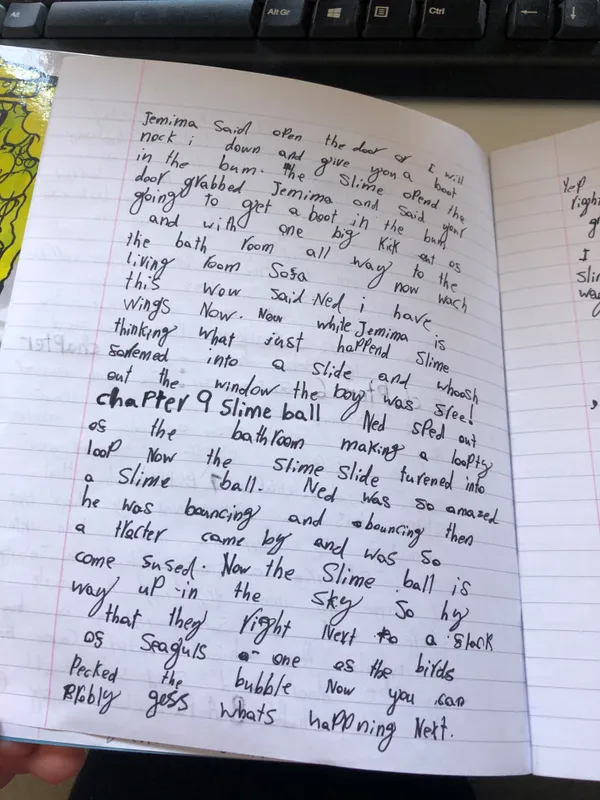 Jemima Said open the door or I will
nock i down and give you a boot
in the bum. The Slime opend the
door grabbed Jemima and said your
going to get a boot in the bum
and with one big kik out of
the bath room all way to the
living room Sofa now wach
this wow said Ned i have
wings Now. Now while Jemima is
thinking what just happend Slime
formed into a slide and whoosh
out the window the boy was free!
chapter 9 Slime ball Ned sped out
of the bathroom making a loopty
loop Now the slime slide turened into
a slime ball. Ned was so amazed
he was bouncing and bouncing then
a tracter came by and was so
come fused. Now the Slime ball is
way up in the sky so hy
that they right Next to a flock
of seaguls one of the birds
Pecked the bubble Now you can
Probly gess whats happning Next.
Yep
right
I
slim
was
Alt
Alt Gr
Ctrl